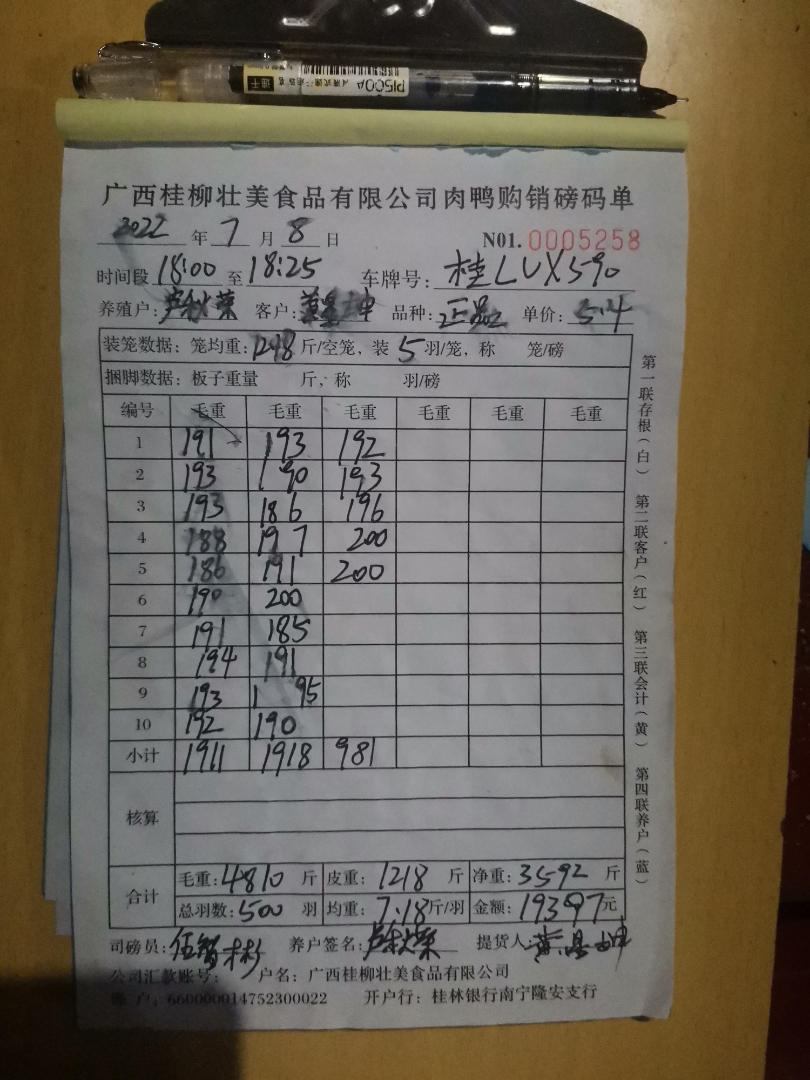 P1500A
速干
广西桂柳壮美食品有限公司肉鸭购销磅码单
2022 年 7 月 8 日 N01. 0005258
时间段 18:00 至 18:25 车牌号: 桂LUX590
养殖户: 卢秋菜 客户: 品种: 正品 单价: 5.4
装笼数据: 笼均重: 12.18 斤/空笼, 装 5 羽/笼, 称 笼/磅
捆脚数据: 板子重量 斤, 称 羽/磅
编号 毛重 毛重 毛重 毛重 毛重 毛重
1 191 193 192
2 193 190 193
3 193 186 196
4 188 197 200
5 186 191 200
6 190 200
7 191 185
8 194 191
9 193 195
10 192 190
小计 1911 1918 981
核算
合计
毛重: 4810 斤 皮重: 1218 斤 净重: 3592 斤
总羽数: 500 羽 均重: 7.18 斤/羽 金额: 19397 元
司磅员: 伍智彬 养户签名: 提货人:
公司汇款账号: 户名: 广西桂柳壮美食品有限公司
账 户: 660000014752300022 开户行: 桂林银行南宁隆安支行
第一联存根(白)
第二联客户(红)
第三联会计(黄)
第四联养户(蓝)